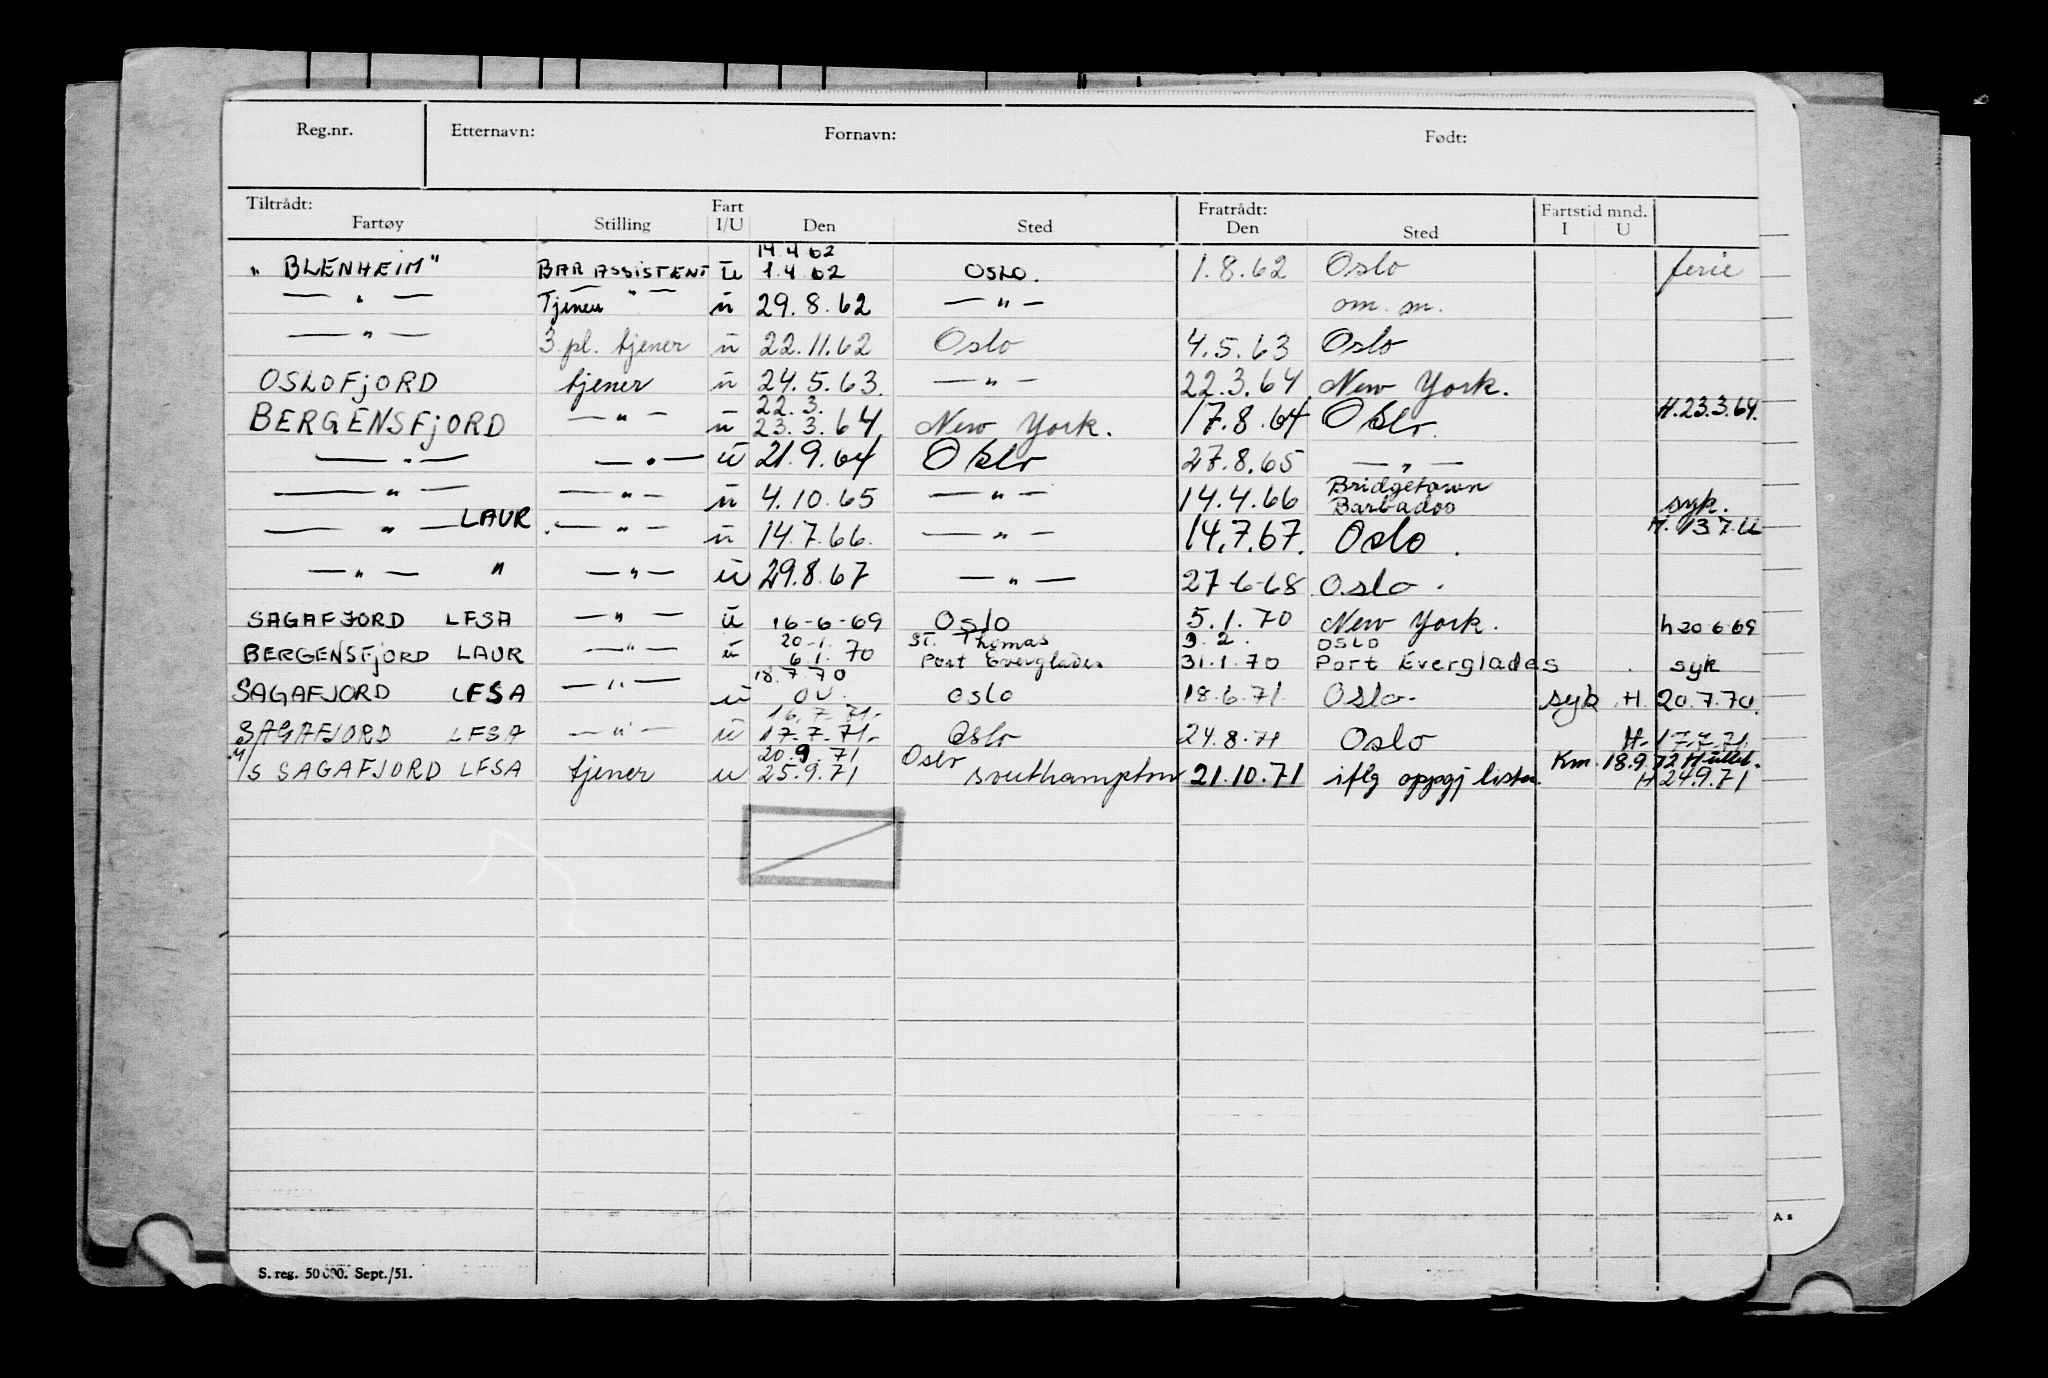 Reg.nr. Etternavn: Fornavn: Født:
Tiltrådt: Fart Fratrådt: Fartstid mnd.
Fartøy Stilling I/U Den Sted Den Sted I U
14.4.62
" BLENHEIM" BAR ASSISTENT ū 1.4.62 OSLO. 1.8.62 Oslo ferie
— " — Tjener — " — ū 29.8.62 — " — om. m.
— " — 3. pl. tjener ū 22.11.62 Oslo 4.5.63 Oslo
OSLOFJORD tjener ū 24.5.63. — " — 22.3.64 New York.
22.3.
BERGENSFJORD — " — ū 23.3.64 New York. 17.8.64 Oslo. H.23.3.64.
— " — — " — ū 21.9.64 Oslo 27.8.65 — " —
— " — — " — ū 4.10.65 — " — 14.4.66 Bridgetown Barbados syk.
— " — LAUR — " — ū 14.7.66. — " — 14.7.67. Oslo. H. 13.7.66
— " — " — " — ū 29.8.67 — " — 27-6-68 Oslo.
SAGAFJORD LFSA — " — ū 16-6-69 Oslo 5.1.70 New York. h 20.6.69
20-1. ST. Thomas 3.2. OSLO
BERGENSFJORD LAUR — " — ū 6.1.70 Port Everglades 31.1.70 Port Everglades syk
18.7.70
SAGAFJORD LFSA — " — ū ov. oslo 18.6.71. Oslo. syk H. 20.7.70.
16.7.71.-
SAGAFJORD LFSA — " — ū 17.7.71.- Oslo 24.8.71 Oslo H. 17.7.71.
20.9.71 Oslo Km. 18.9.72
M/S SAGAFJORD LFSA tjener u 25.9.71 southampton 21.10.71 iflg oppgj listen. H 24.9.71
S. reg. 50 000. Sept./51.
A s